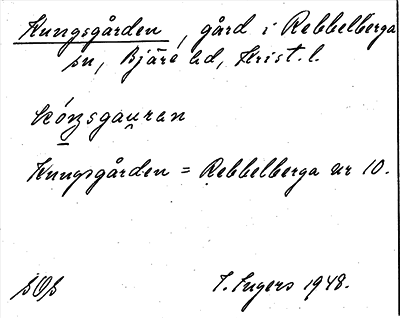 Kungsgården, gård i Rebbelberga
sn, Bjäre hd, Krist. l.
Kungsgården = Rebbelberga nr 10.
I. Ingers 1948.